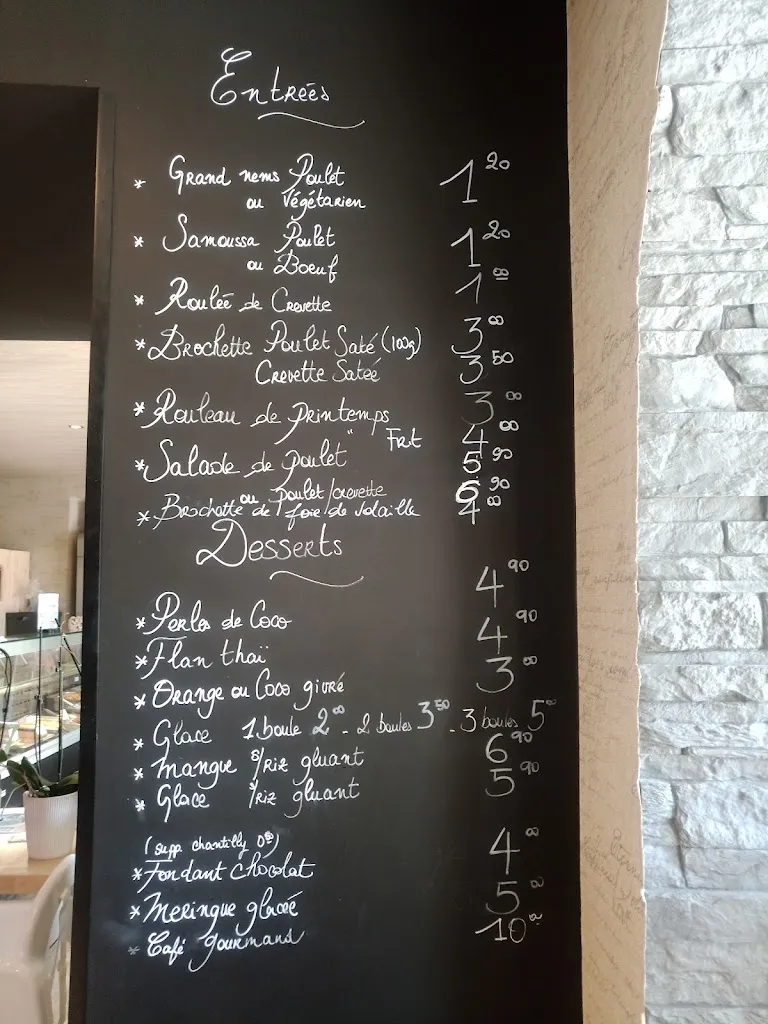 Entrées
* Grand nems Poulet 1 20
ou Végétarien
* Samoussa Poulet 1 20
ou Boeuf
* Roulée de Crevette 1 00
* Brochette Poulet Saté (100g) 3 00
Crevette Satée 3 50
* Rouleau de printemps 3 00
" Frit 4 00
* Salade de poulet 5 90
ou poulet/crevette 6 90
* Brochette de foie de volaille 4 00
Desserts
* Perles de Coco 4 90
* Flan thaï 4 90
* Orange ou Coco givré 3 00
* Glace 1 boule 2 00 - 2 boules 3 50 - 3 boules 5 00
* Mangue s/riz gluant 6 90
* Glace s/riz gluant 5 90
(supp. chantilly 0 80)
* Fondant chocolat 4 00
* Meringue glacée 5 00
* Café gourmand 10 00